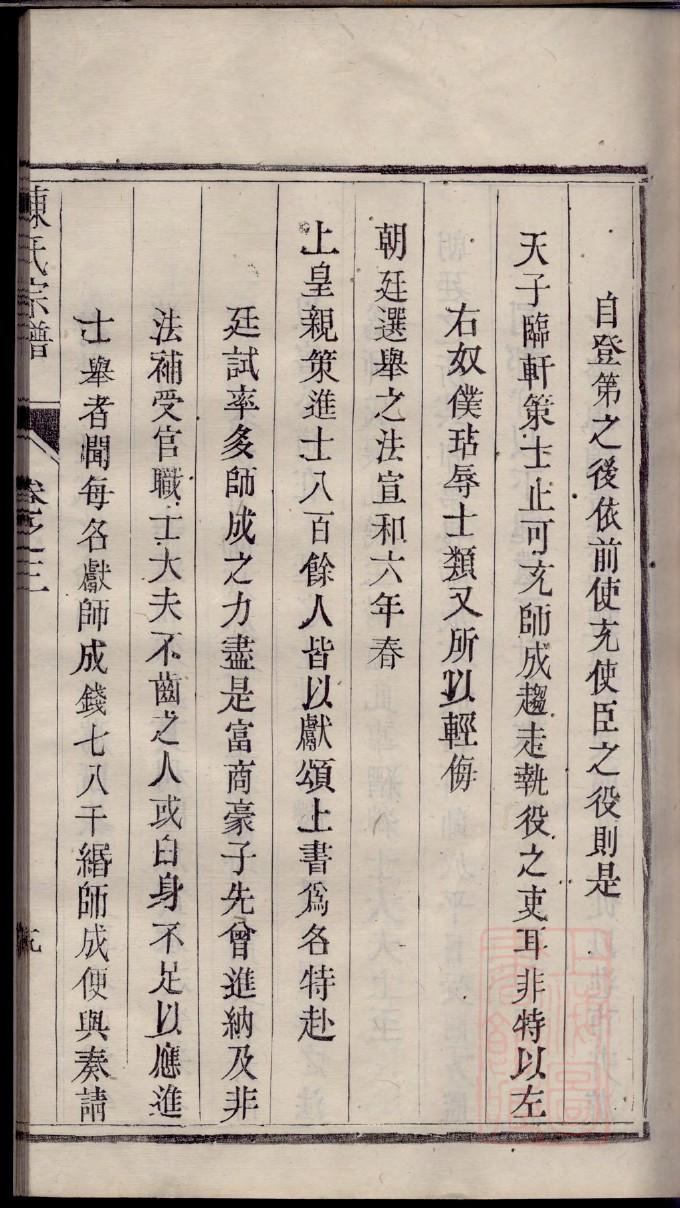 自登第之後依前使充使臣之役則是
天子臨軒策士止可充師成趨走執役之吏耳非特以左
右奴僕玷辱士類又所以輕侮
朝廷選舉之法宣和六年春
上皇親策進士八百餘人皆以獻頌上書爲名特赴
廷試率多師成之力盡是富商豪子先曾進納及非
法補受官職士大夫不齒之人或白身不足以應進
士舉者聞每名獻師成錢七八千緡師成便與奏請
陳氏宗譜
卷之三